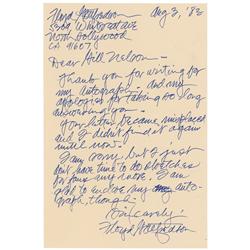 Floyd Gottfredson
Aug 3, '83
Whitsett Ave
North Hollywood
CA 91607
Dear Hill Nelson -
Thank you for writing for
my autograph - and my
apologies for taking so long
answering you.
Your letter became misplaced
and I didn't find it again
until now.
I am sorry but I just
don't have time to do sketches
for fans any more. I am
glad to enclose my auto-
graph, though.
Sincerely,
Floyd Gottfredson